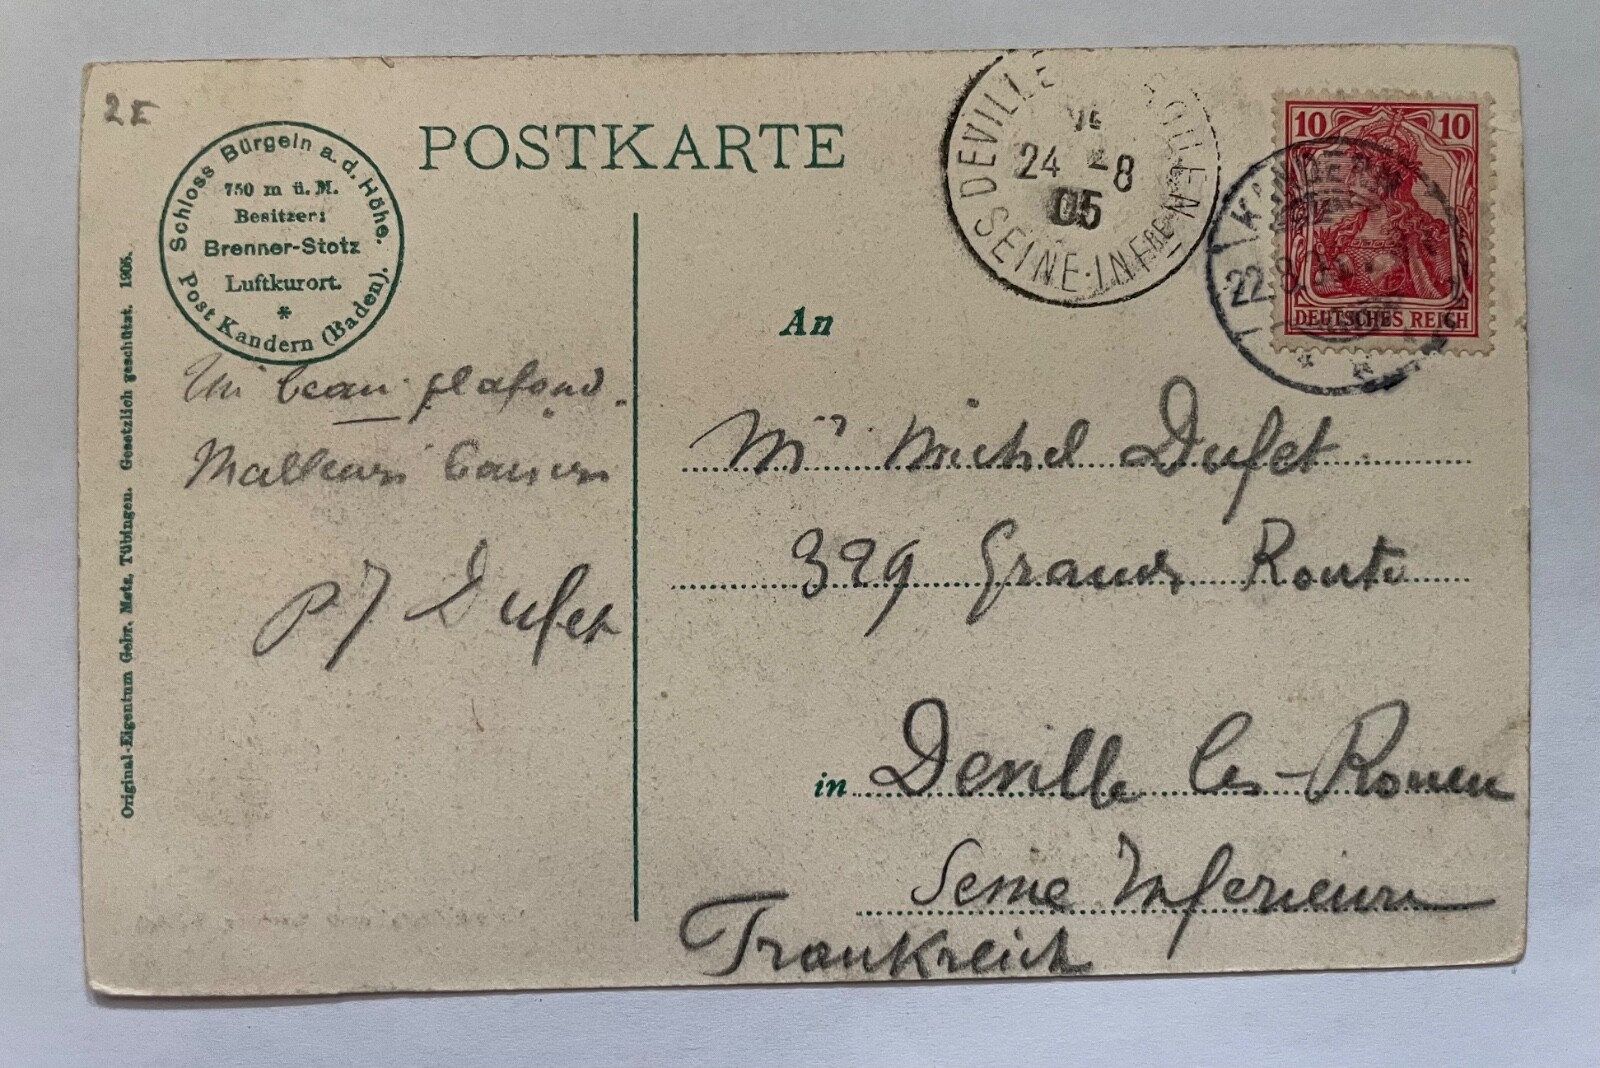 2E
POSTKARTE
Schloss Bürgeln a. d. Höhe.
750 m ü. M.
Besitzer:
Brenner-Stotz
Luftkurort.
*
Post Kandern (Baden).
Original-Eigentum Gebr. Metz, Tübingen. Gesetzlich geschützt. 1905.
DEVILLE ROUEN
24 - 8
05
SEINE-INFRE
10 10
DEUTSCHES REICH
KANDERN
22.8.
* *
Un beau plafond.
Meilleurs baisers
PJ Dufet
An
Mr Michel Dufet
329 Grande Route
in Deville les-Rouen
Seine Inferieure
Frankreich